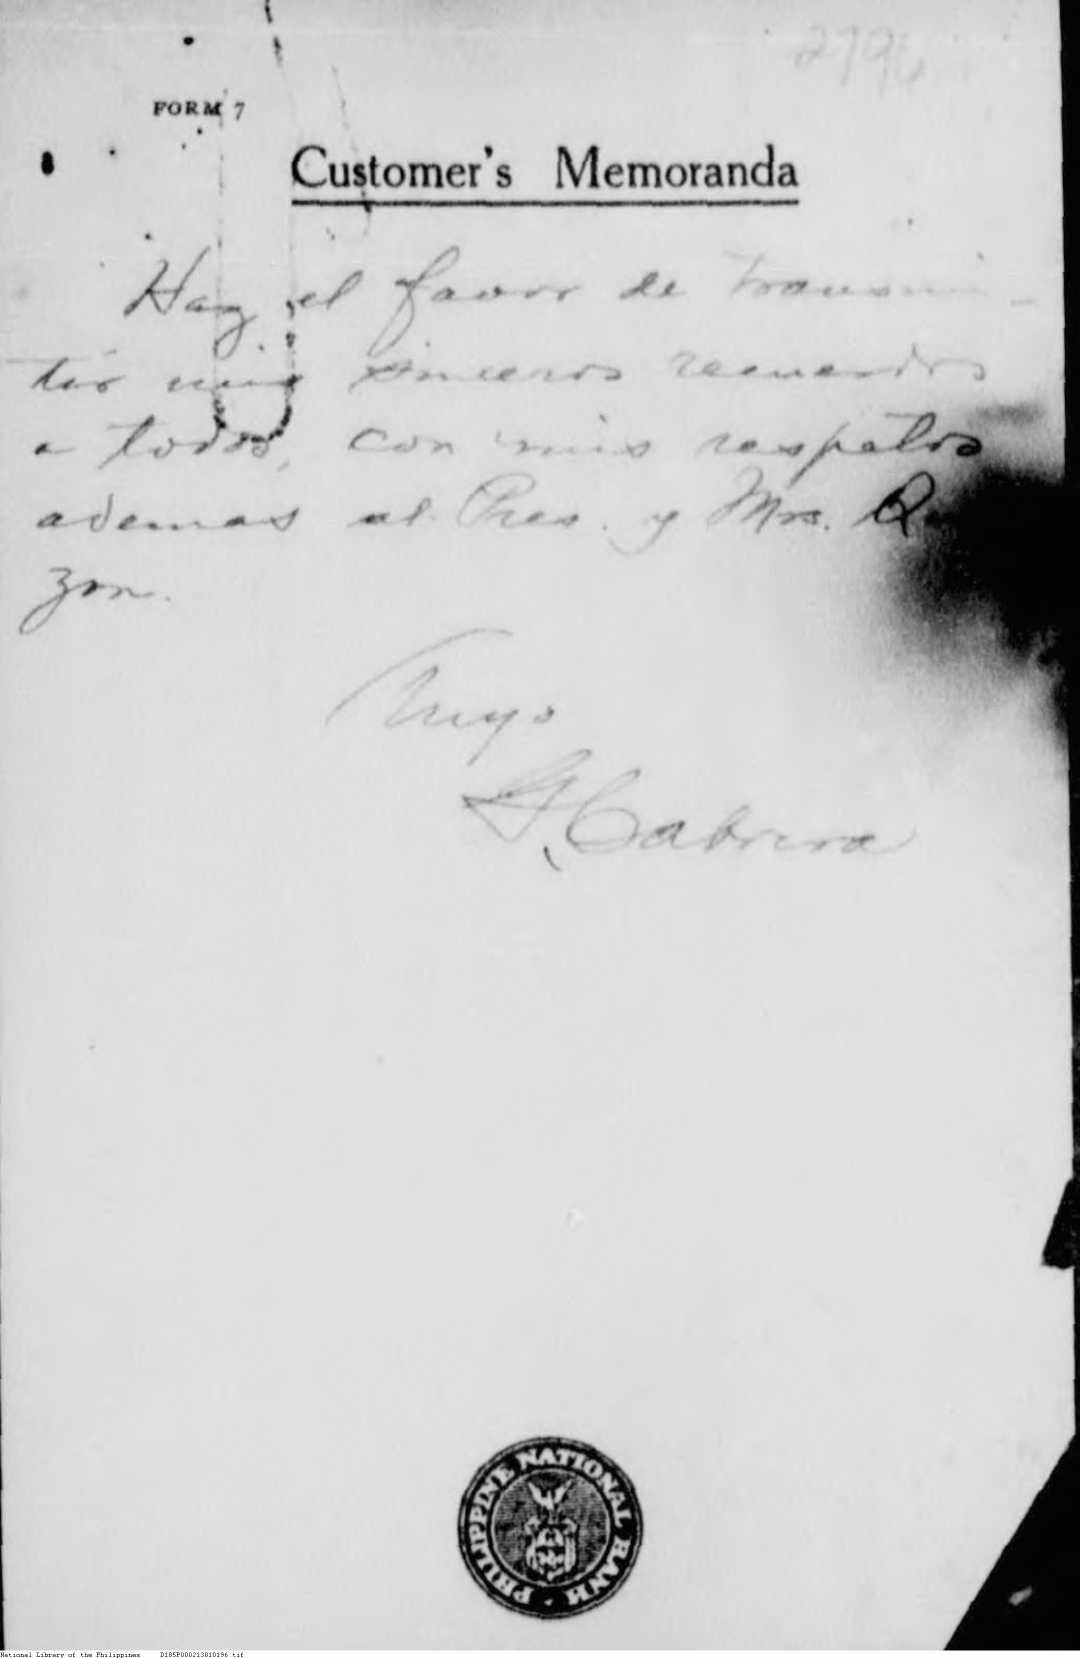 2796
FORM 7
Customer's Memoranda
Haz el favor de transmi-
tir mis sinceros recuerdos
a todos, con mis respetos
ademas al Pres. y Mrs. Q
zon.
Tuyo
Cabrera
PHILIPPINE NATIONAL BANK
National Library of the Philippines D185P000213010196.tif